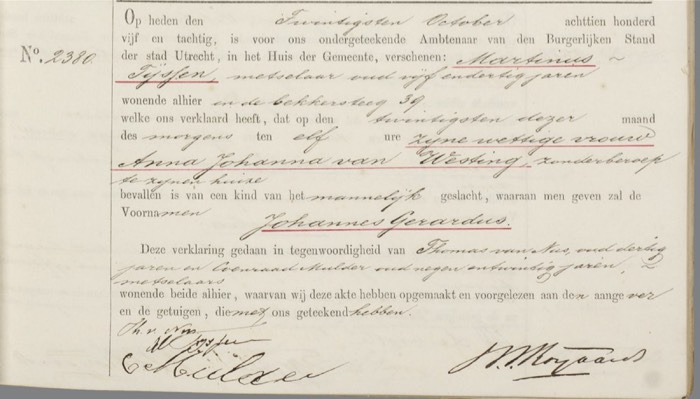 Nº. 2380.
Op heden den Twintigsten October achttien honderd
vijf en tachtig, is voor ons ondergeteekende Ambtenaar van den Burgerlijken Stand
der stad Utrecht, in het Huis der Gemeente, verschenen: Martinus
Tijssen, metselaar oud vijf en dertig jaren
wonende alhier in de Bekkersteeg 39
welke ons verklaard heeft, dat op den twintigsten dezer maand
des morgens ten elf ure zijne wettige vrouw
Anna Johanna van Westing, zonder beroep
te zijnen huize
bevallen is van een kind van het mannelijk geslacht, waaraan men geven zal de
Voornamen Johannes Gerardus.
Deze verklaring gedaan in tegenwoordigheid van Thomas van Nus, oud dertig
jaren en Coenraad Mulder oud negen en twintig jaren,
metselaars
wonende beide alhier, waarvan wij deze akte hebben opgemaakt en voorgelezen aan den aangever
en de getuigen, die met ons geteekend hebben.
Th. v. Nus
M Tijssen
C Mulder